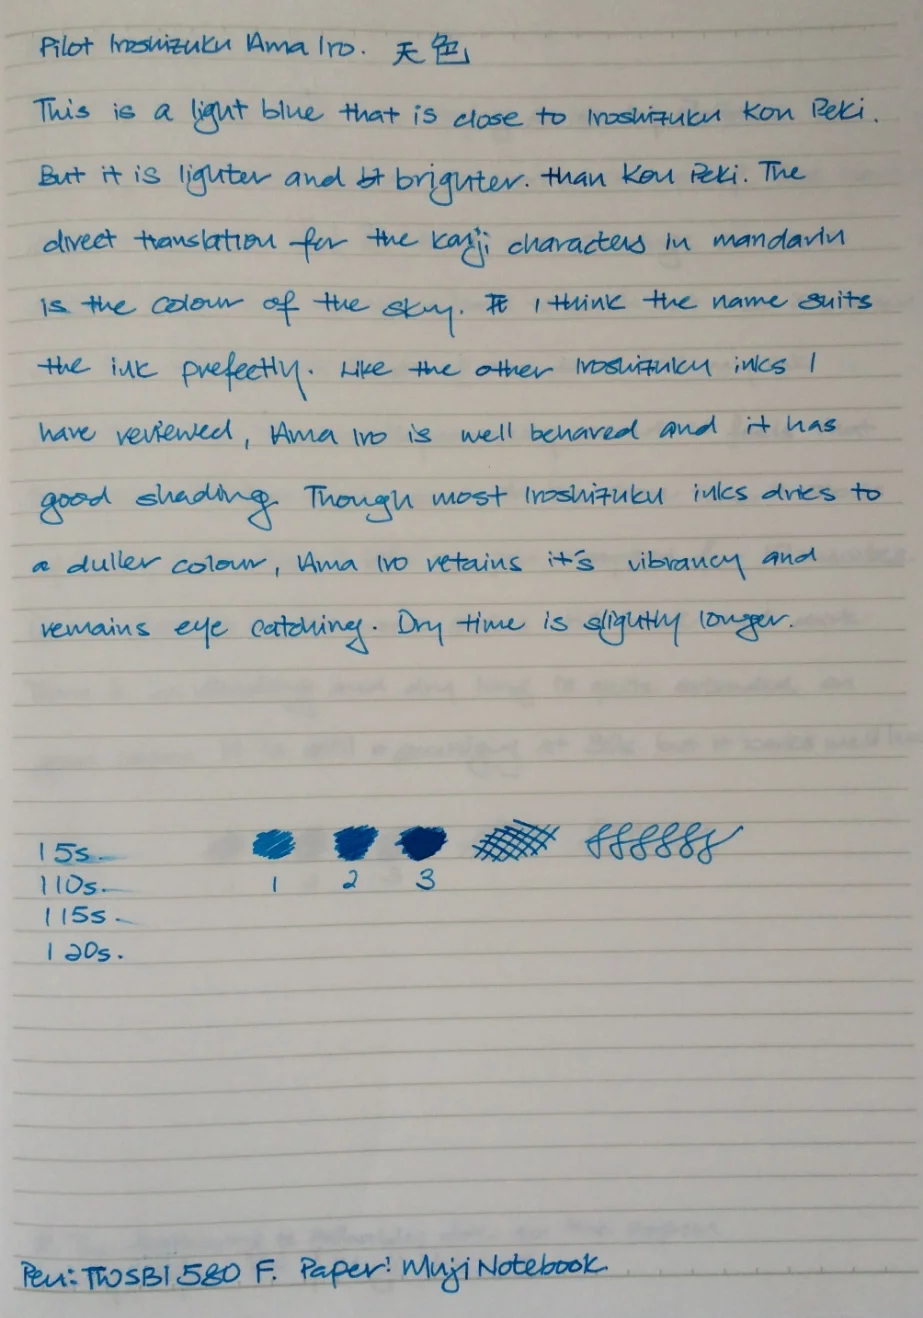 Pilot Iroshizuku Ama Iro. 天色
This is a light blue that is close to Iroshizuku Kon Peki.
But it is lighter and brighter. than Kon Peki. The
direct translation for the kanji characters in mandarin
is the colour of the sky. I think the name suits
the ink prefectly. Like the other Iroshizuku inks I
have reviewed, Ama Iro is well behaved and it has
good shading. Though most Iroshizuku inks dries to
a duller colour, Ama Iro retains it's vibrancy and
remains eye catching. Dry time is slightly longer.
| 5s.
| 10s.
| 15s.
| 20s.
1 2 3
Pen: TWSBI 580 F. Paper: Muji Notebook